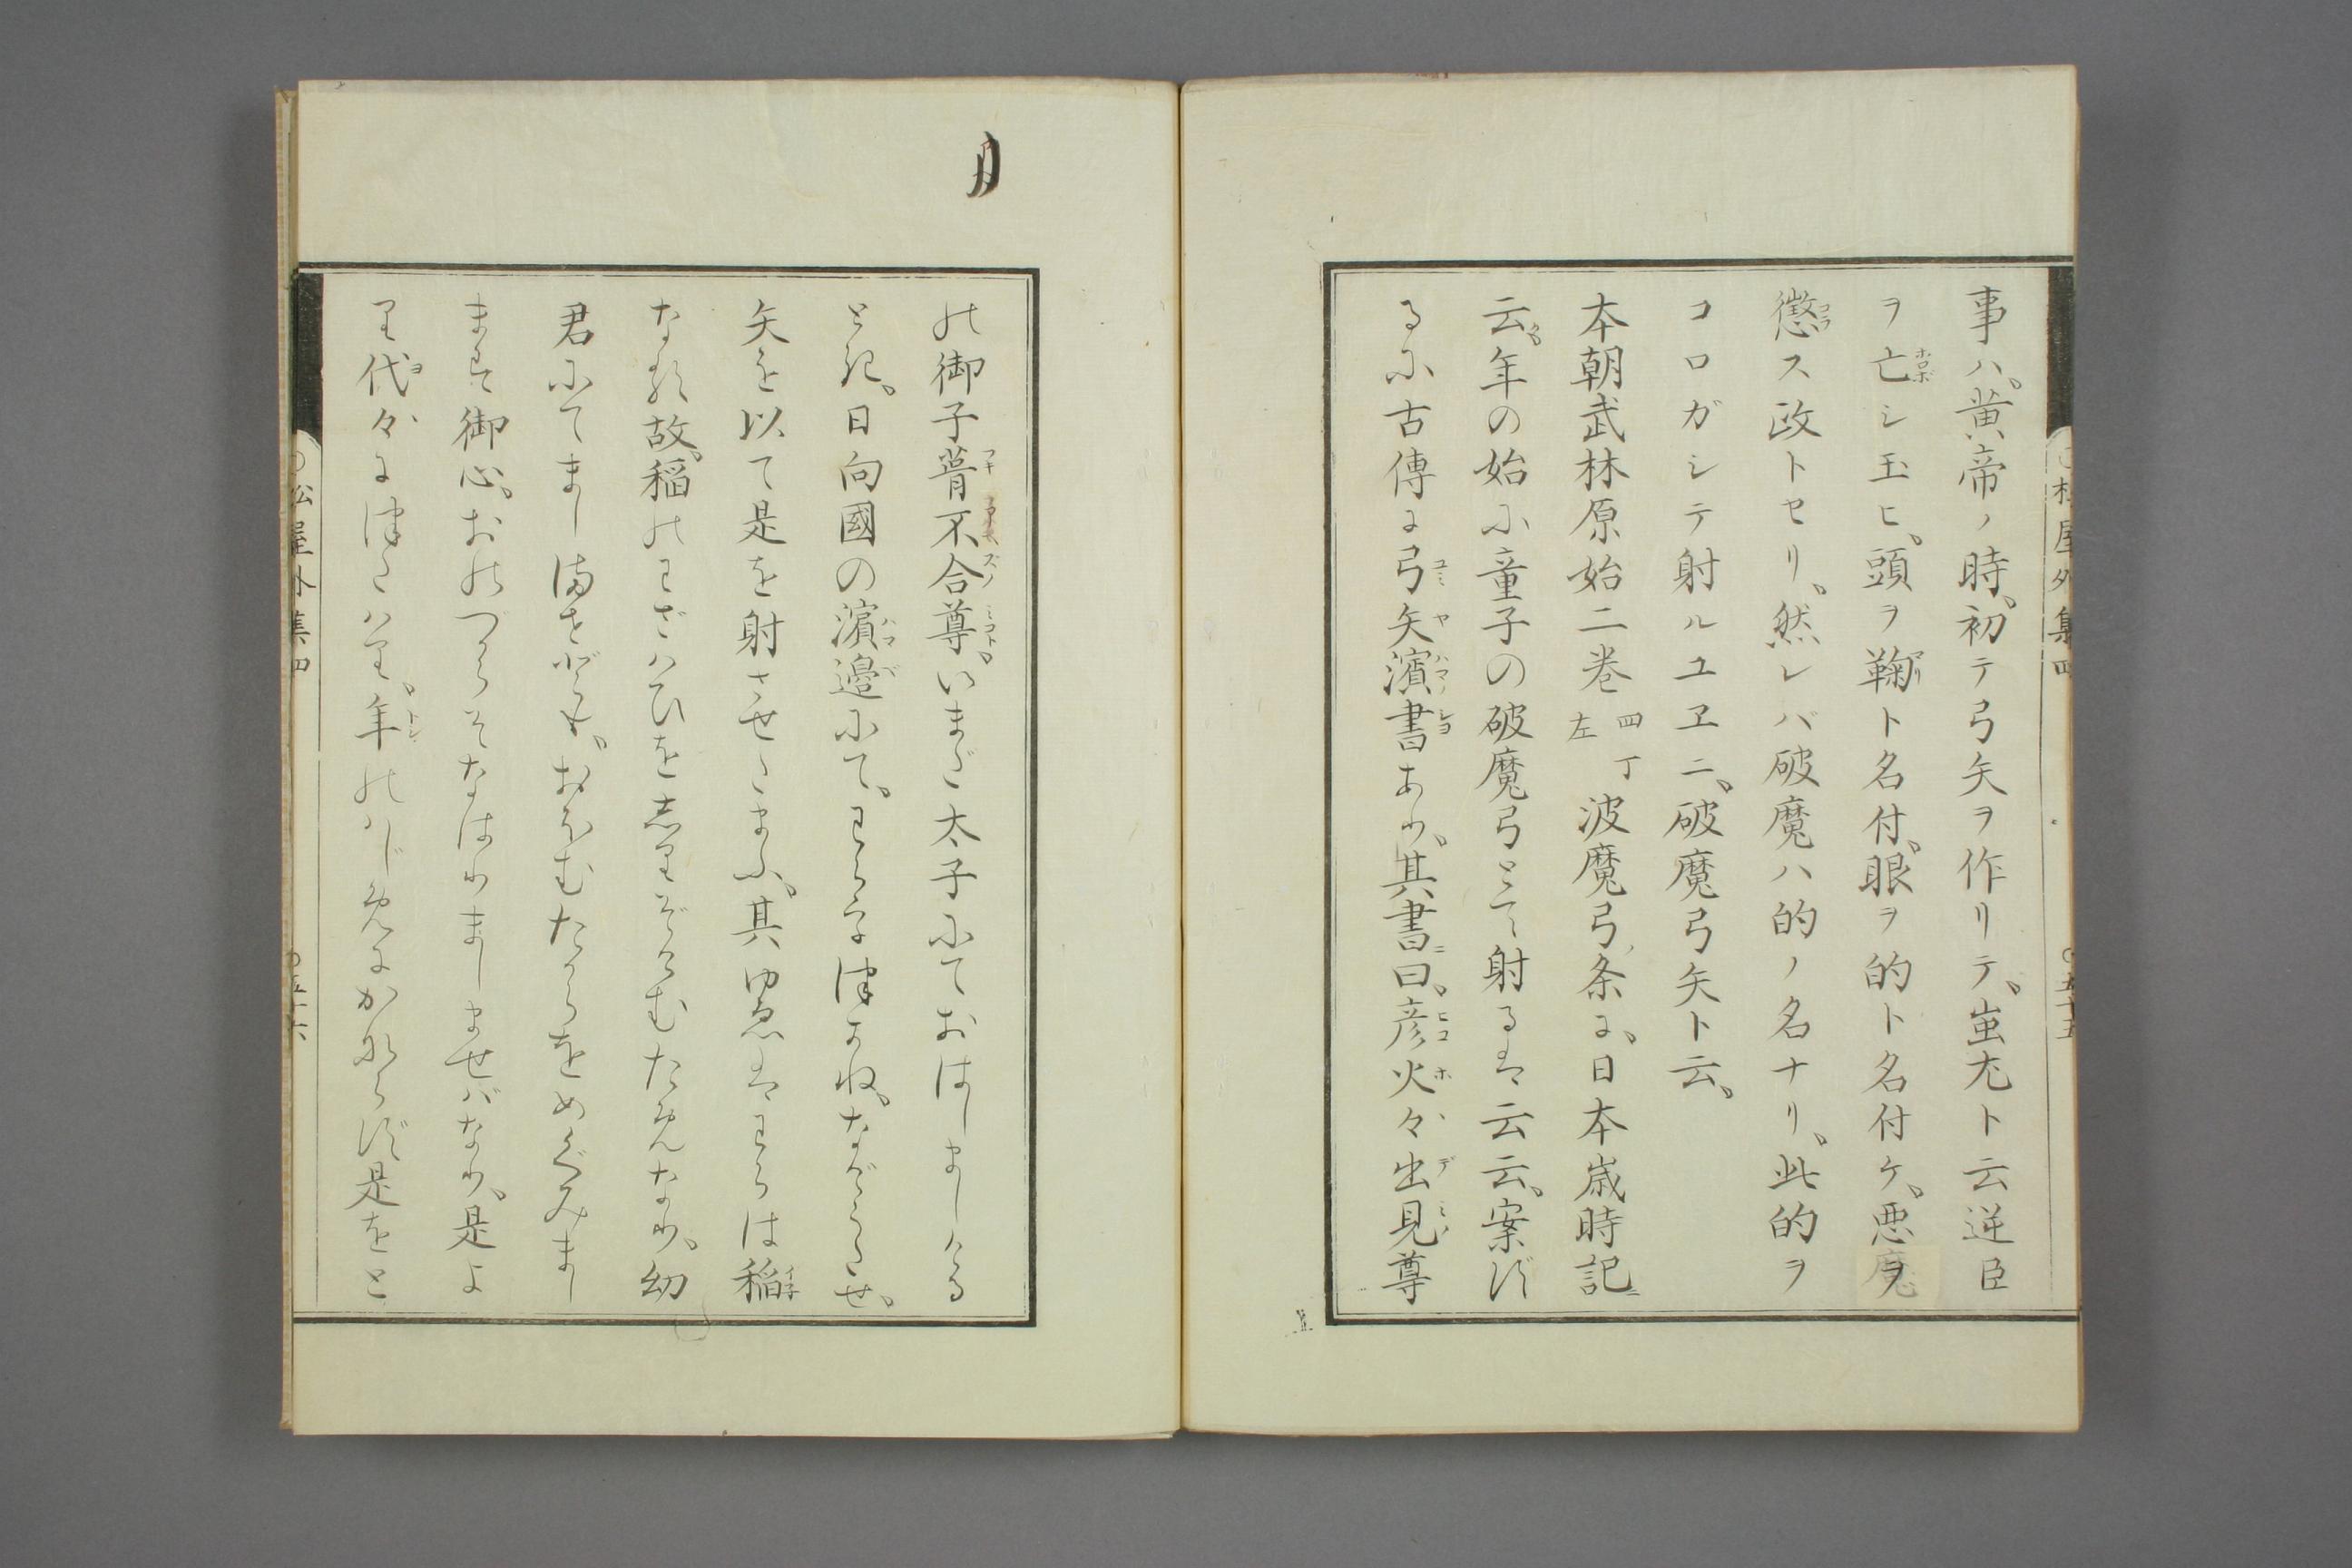 事ハ、黄帝ノ時、初テ弓矢ヲ作リテ、蚩尤ト云逆臣
ヲ亡シ玉ヒ、頭ヲ鞠ト名付、眼ヲ的ト名付ケ、悪魔ヲ
懲ス政トセリ、然レバ破魔ハ的ノ名ナリ、此的ヲ
コロガシテ射ルユヱニ、破魔弓矢ト云、
本朝武林原始二巻 四丁左 波魔弓ノ条に、日本歳時記ニ
云ク、年の始に童子の破魔弓とて射るは云云、案ず
るに古傳に弓矢濱書あり、其書ニ曰、彦火々出見尊
の御子葺不合尊、いまだ太子にておはしましける
とき、日向國の濱邊にて、
矢を以て是を射させたまふ、其ゆゑはわらは稲
なる故、稲のわざはひをしりぞけむためなり、幼
君にてましませども、おほむたからをめぐみまし
ます御心、おのづらそなはりましませバなり、是よ
り代々につたハり、年のハじめにかならず是をと
松屋外集四
〇五十五
松屋外集四
〇五十六